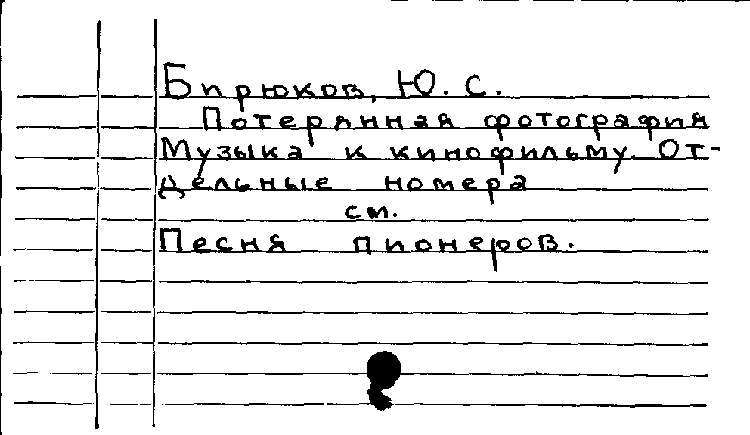 Бирюков, Ю. С.
Потерянная фотография
Музыка к кинофильму. От-
дельные номера
см.
Песня пионеров.